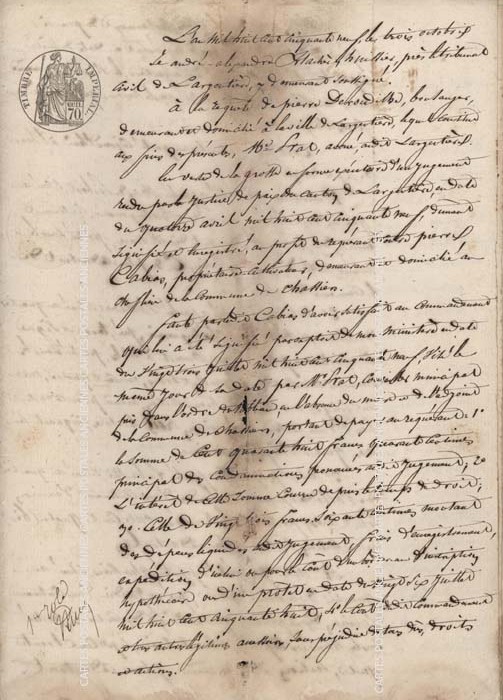 L'an mil huit cent cinquante neuf, le trois octobre
Je andré alexandre huissier, près le tribunal
civil de Largentière, y demeurant soussigné.
à la requête de pierre boulanger,
demeurant et domicilié à la ville de Largentière, lequel constitue
aux fins des présentes, Me Prat, avoué audit Largentière.
En vertu de la grosse en forme exécutoire d'un jugement
rendu par la justice de paix du canton de Largentière en date
du quatorze avril mil huit cent cinquante neuf, dument
signifié et enregistré, au profit du requérant contre pierre
Cabias, propriétaire cultivateur, demeurant et domicilié au
chef lieu de la Commune de Chassiers.
faute par ledit Cabias d'avoir satisfait au commandement
qui lui a été signifié par exploit de mon ministère en date
du vingt trois juillet mil huit cent cinquante neuf, visé le
même jour de sa date par Mr Prat, conseiller municipal
pris dans l'ordre du tableau en l'absence du maire et de l'adjoint
de la Commune de Chassiers, portant de payer au requérant 1°
la somme de Cent quarante huit francs quarante centimes
principal des Condamnations prononcées audit jugement; 2°
L'intérêt de cette somme couru depuis le temps de droit;
3°. Celle de vingt trois francs soixante centimes montant
des dépens liquidés audit jugement, frais d'enregistrement,
expédition d'icelui ou pour le coût d'inscription
hypothécaire ou d'un protêt en date du vingt six juillet
mil huit cent cinquante huit, 4° le coût dudit Commandement
et tous actes légitimes accessoires, sans préjudice de tous dus, droits
et actions.
1er rôle
TIMBRE IMPERIAL
70